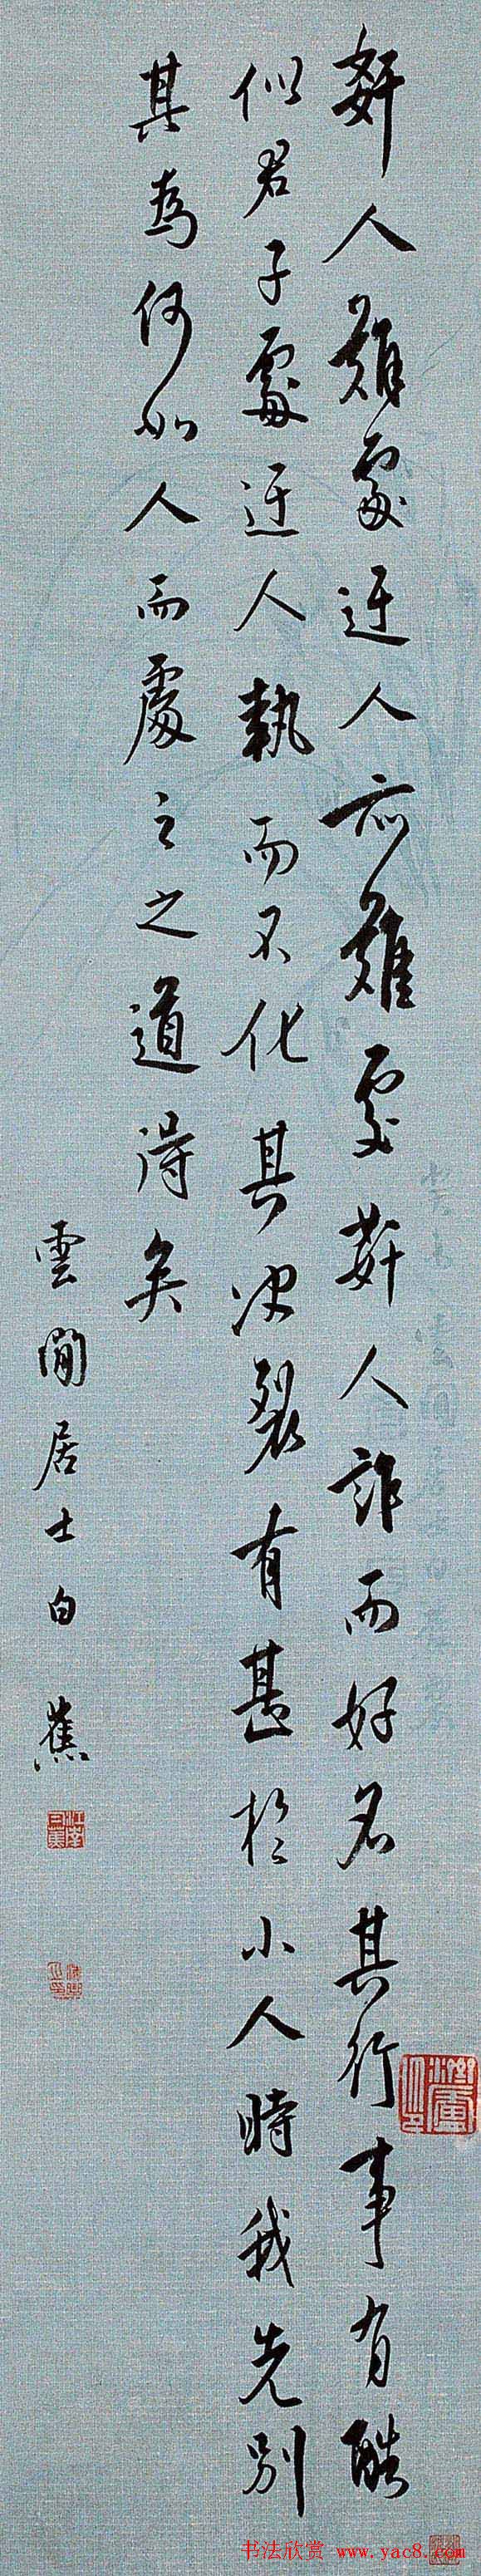 奸人難處迂人亦難處奸人詐而好名其行事有酷
似君子處迂人執而不化其決裂有甚於小人時我先別
其為何如人而處之之道得矣
雲間居士白蕉
书法欣赏 www.yac8.com